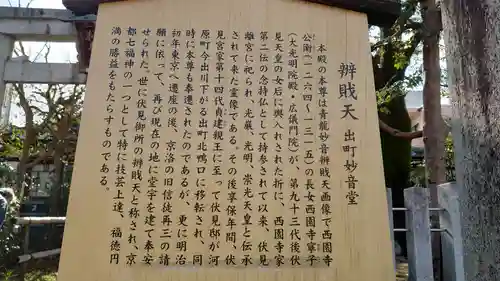 辨賊天 出町妙音堂
本殿の本尊は青龍妙音辨天画像で西園寺
公衡(一二六四~一三一五)の長女西園寺寧子
(大光明院殿・広儀門院)が、第九十三代後伏
見天皇の女后に輿入れされた折に、西園寺家
第二伝の念持仏として持参されて以来、伏見
離宮に祀られ、光厳、光明、崇光天皇と伝承
されて来た霊像である。その後享保年間、伏
見宮家第十四代貞建親王に至って伏見邸が河
原町今出川下がる出町北鴨口に移転され、同
時に本尊も奉遷されたのである。更に明治
初年東京へ遷座の後、京洛の旧信徒再三の請
願に依って、再び現在の地に堂宇を建て奉安
せられた。世に伏見御所の辨財天と称され、京
都七福神の一つとして特に技芸上達、福徳円
満の勝益をもたらすものである。